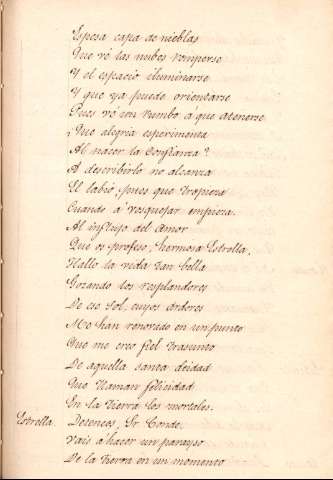 Espesa capa de nieblas
Que vé las nubes romperse
Y el espacio iluminarse
Y que ya puede orientarse
Pues vé un rumbo á que atenerse
¿Que alegria esperimenta
Al nacer la confianza?
A describirlo no alcanza
El labio, pues que tropieza
Cuando á vosquejar empieza.
Al influjo del amor
Que os profeso, hermosa Estrella,
Hallo la vida tan bella
Gozando los resplandores
De ese Sol, cuyos ardores
Me han renovado en un punto
Que me creo fiel trasunto
De aquella santa deidad
Que llaman felicidad
En la tierra los mortales.
Estrella. Deteneos, Sr. Conde,
Vais á hacer un parayso
De la tierra en un momento